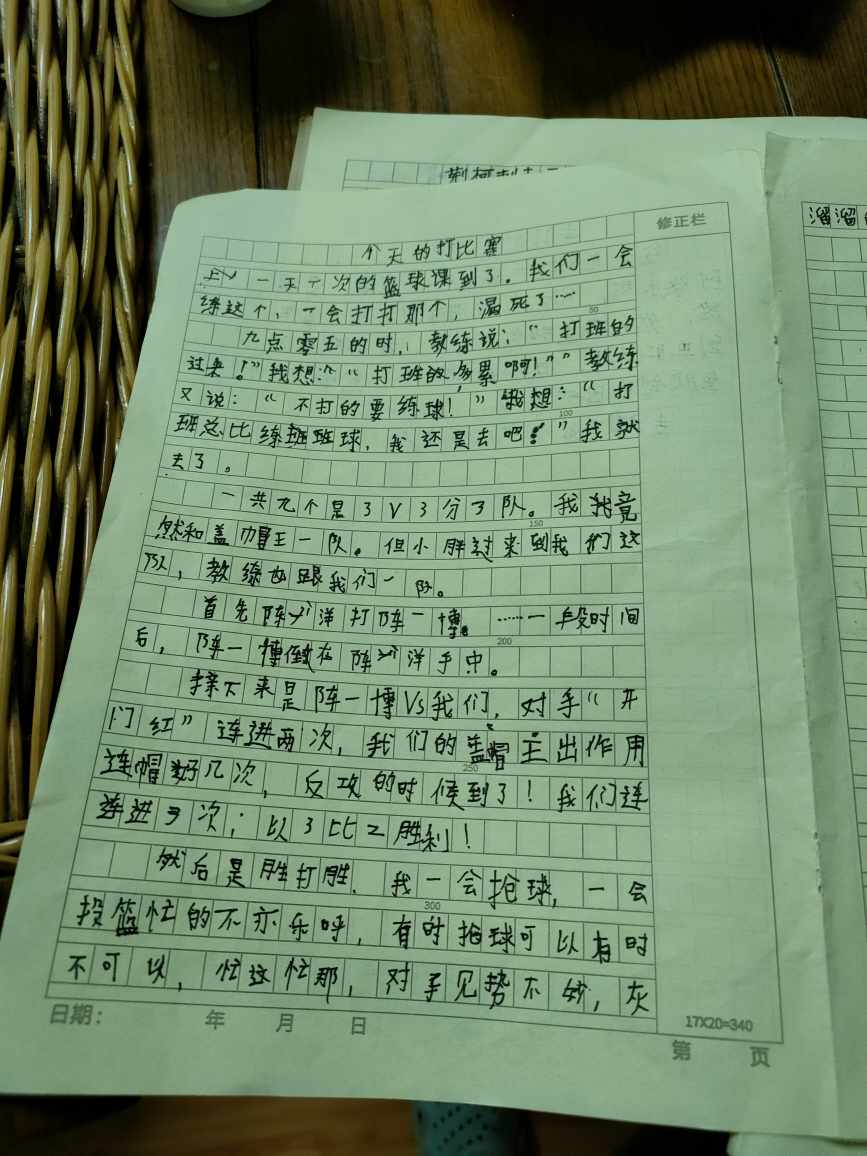 荆柯刺
修正栏
溜溜
个天的打比赛
一天一次的篮球课到了。我们一会
练这个，一会打打那个，漏死了……
50
九点零五的时，教练说：“打班的
过来！”我想：“打班的多累啊！”“教练
又说：“不打的要练球！”我想：“打
100
班总比练班班球，我还是去吧！”我就
去了。
一共九个是3V3分3队。我我竟
150
然和盖帽王一队。但小胖过来到我们这
队，教练也跟我们一队。
首先阵 洋打阵一博。……一段时间
200
后，阵一博倒在阵 洋手中。
接下来是阵一博Vs我们，对手“开
门红”连进两次，我们的盖帽王出作用
250
连帽好几次，反攻的时候到了！我们连
连进3次；以3比2胜利！
然后是胜打胜．我一会抢球，一会
300
投篮忙的不亦乐呼，有时拍球可以有时
不可以，忙这忙那，对手见势不妙，灰
日期： 年 月 日
17X20=340
第 页